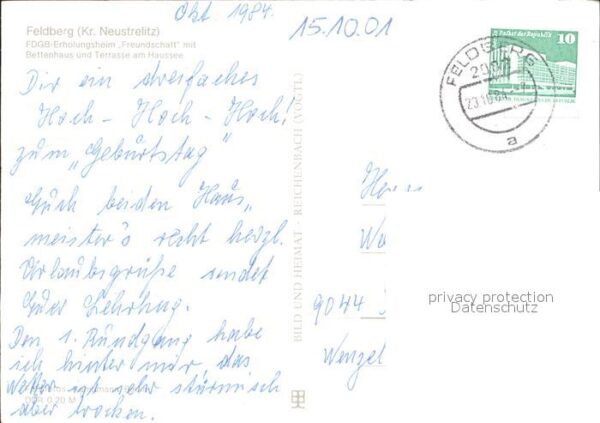 Okt 1984.
15.10.01
Feldberg (Kr. Neustrelitz)
FDGB-Erholungsheim „Freundschaft" mit
Bettenhaus und Terrasse am Haussee
Palast der Republik
10
FELDBERG
2007
23.10.84
a
Dir ein dreifaches
Hoch - Hoch - Hoch!
zum „Geburtstag"
Euch beiden Haus„
meister's recht herzl.
Urlaubsgrüße sendet
Euer
Den 1. Rundgang habe
ich hinter mir, das
Wetter ist sehr stürmisch
aber trocken.
BILD UND HEIMAT · REICHENBACH (VOGTL)
Herrn
Wa
9044
Wenzel
privacy protection
Datenschutz
DDR 0,20 M